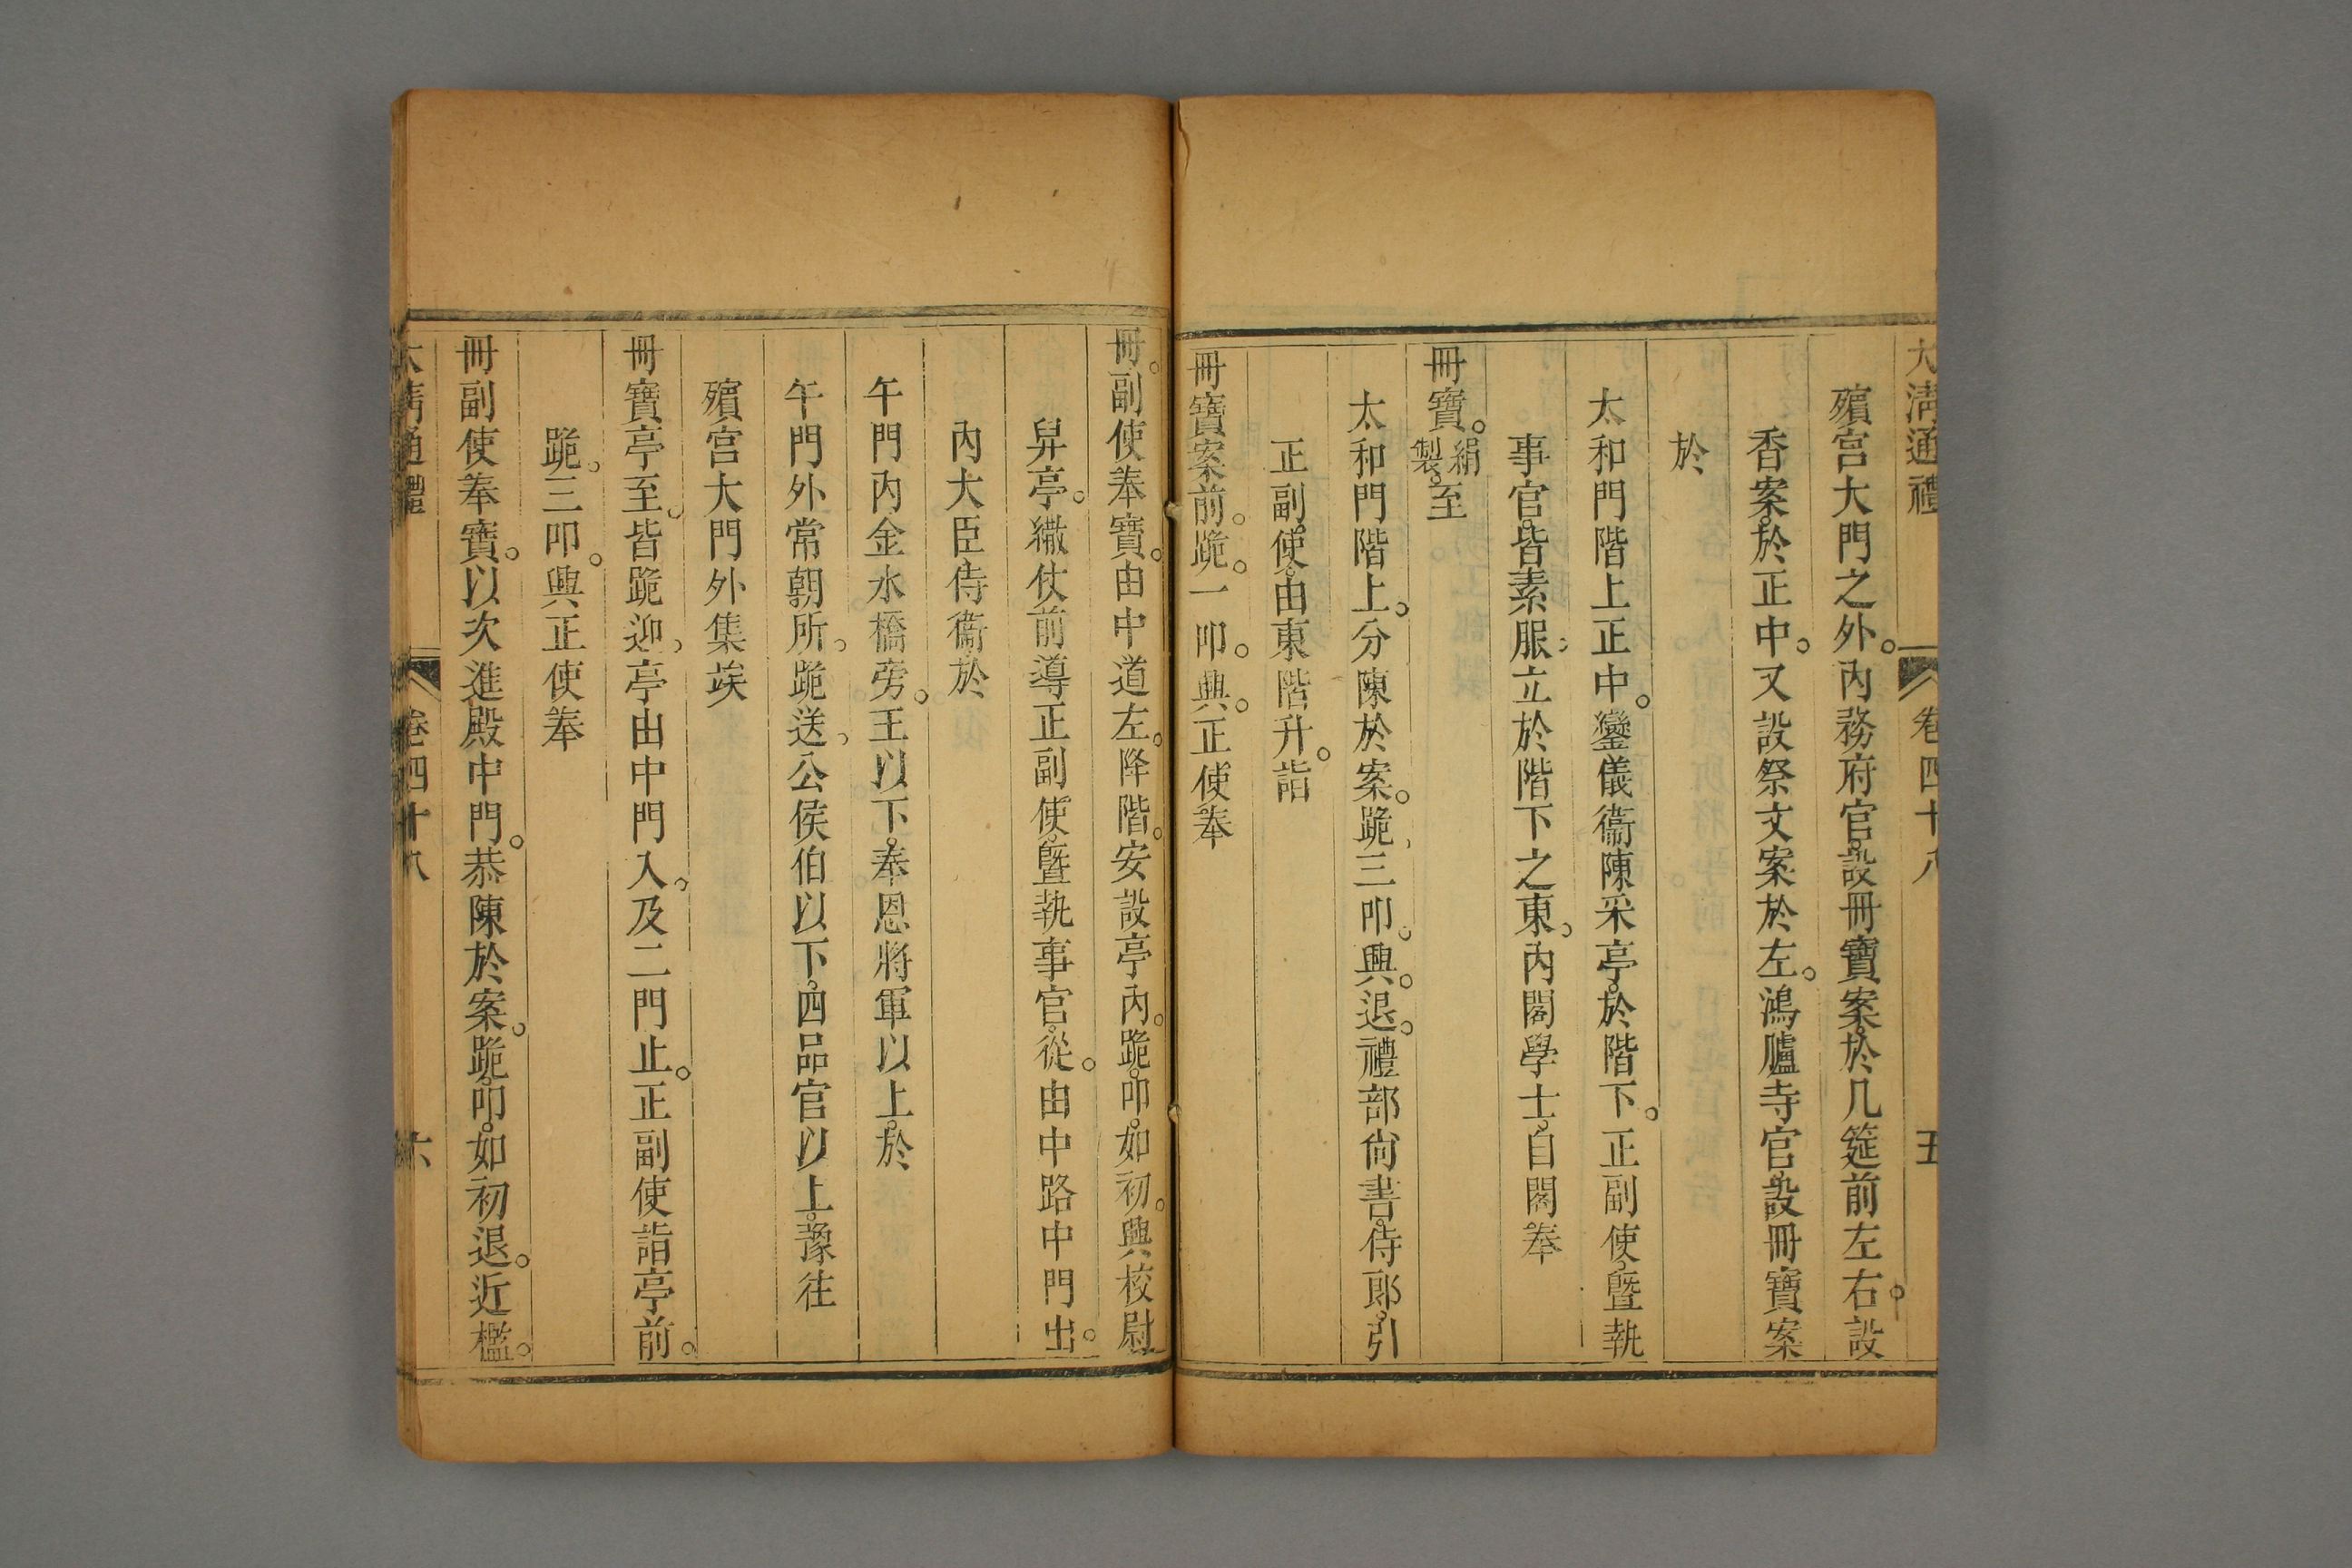 大清通禮 卷四十八 五
殯宮大門之外。內務府官。設冊寶案。於几筵前左右。設
香案。於正中。又設祭文案於左。鴻臚寺官。設冊寶案
於
太和門階上正中。鑾儀衞陳采亭。於階下。正副使。曁執
事官。皆素服。立於階下之東。內閣學士。自閣奉
冊寶。絹製。至
太和門階上。分陳於案。跪、三叩。興。退。禮部尙書。侍郞。引
正副使。由東階升。詣
冊寶案前。跪。一叩。興。正使奉
冊。副使奉寶。由中道左。降階。安設亭內。跪。叩。如初。興校尉
舁亭。繖仗前導正副使。曁執事官。從。由中路中門出。
內大臣侍衞。於
午門內金水橋旁。王以下。奉恩將軍以上。於
午門外常朝所。跪送。公侯伯以下。四品官以上。豫往
殯宮大門外集竢
冊寶亭至。皆跪迎。亭由中門入。及二門止。正副使詣亭前。
跪。三叩。興正使奉
冊副使奉寶。以次進殿中門。恭陳於案。跪。叩。如初退。近檻。
大清通禮 卷四十八 六